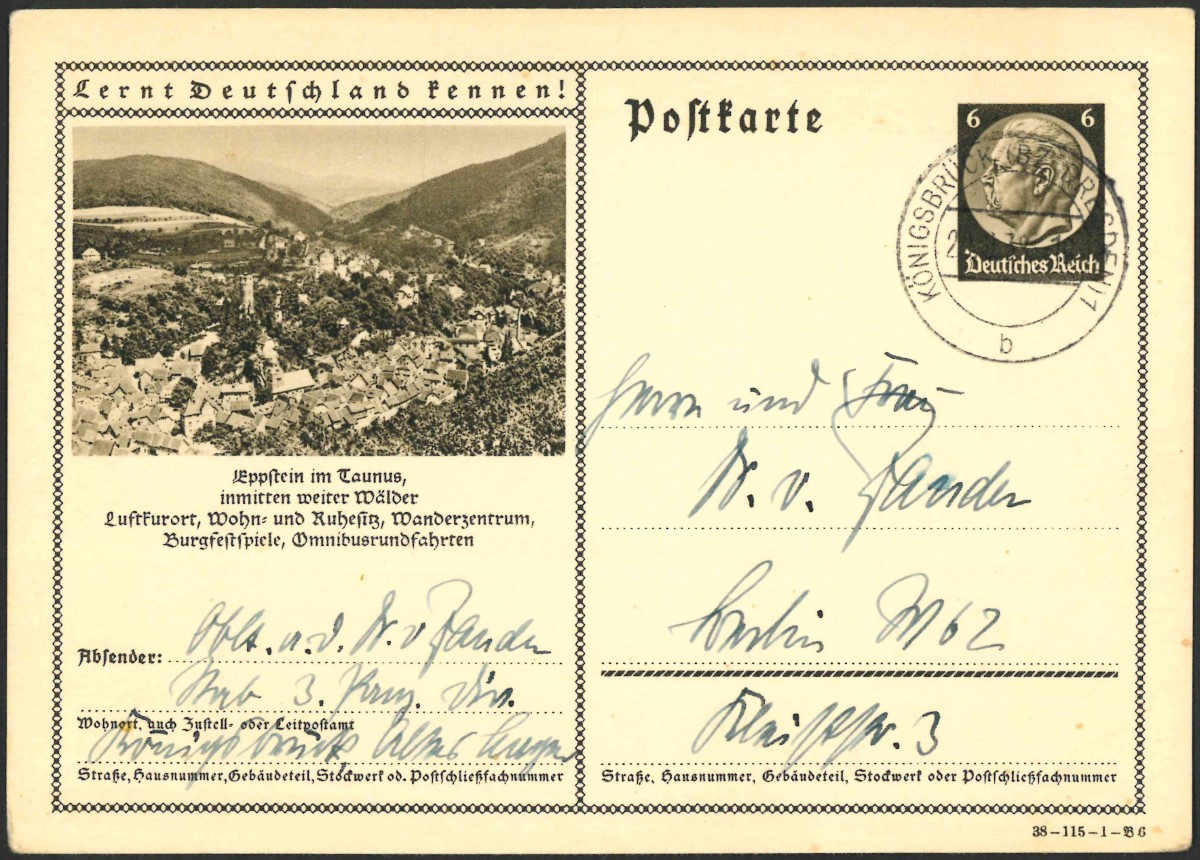 Lernt Deutschland kennen!
Eppstein im Taunus,
inmitten weiter Wälder
Luftkurort, Wohn- und Ruhesitz, Wanderzentrum,
Burgfestspiele, Omnibusrundfahrten
Oblt. a. d. W. v. Zander
Absender:
Stab 3. Panz. Div.
Wohnort, auch Zustell- oder Leitpostamt
Königsbrück, Altes Lager
Straße, Hausnummer, Gebäudeteil, Stockwerk od. Postschließfachnummer
Postkarte
6 6
Deutsches Reich
KÖNIGSBRÜCK (BZ. DRESDEN) 1
b
Herrn und Frau
W. v. Zander
Berlin W 62
Kleiststr. 3
Straße, Hausnummer, Gebäudeteil, Stockwerk oder Postschließfachnummer
38-115-1-B6